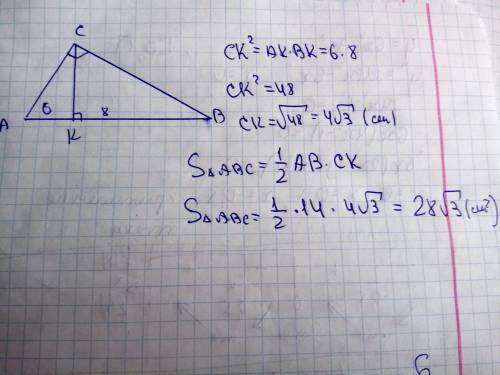 C
CK² = AK · BK = 6 · 8
CK² = 48
CK = √48 = 4√3 (см)
A 6 K 8 B
S△ABC = 1/2 AB · CK
S△ABC = 1/2 · 14 · 4√3 = 28√3 (см²)
6